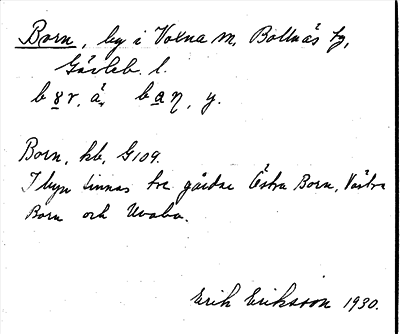 Born, by i Voxna sn, Bollnäs tg,
Gävleb. l.
bor, ä, y.
Born, kb, G109.
I byn finnas tre gårdar Östra Born, Västra
Born och
Erik Eriksson 1930.